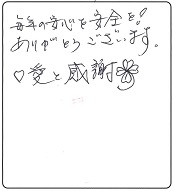 毎年の安心を安全を!
ありがとうございます。
♡愛と感謝